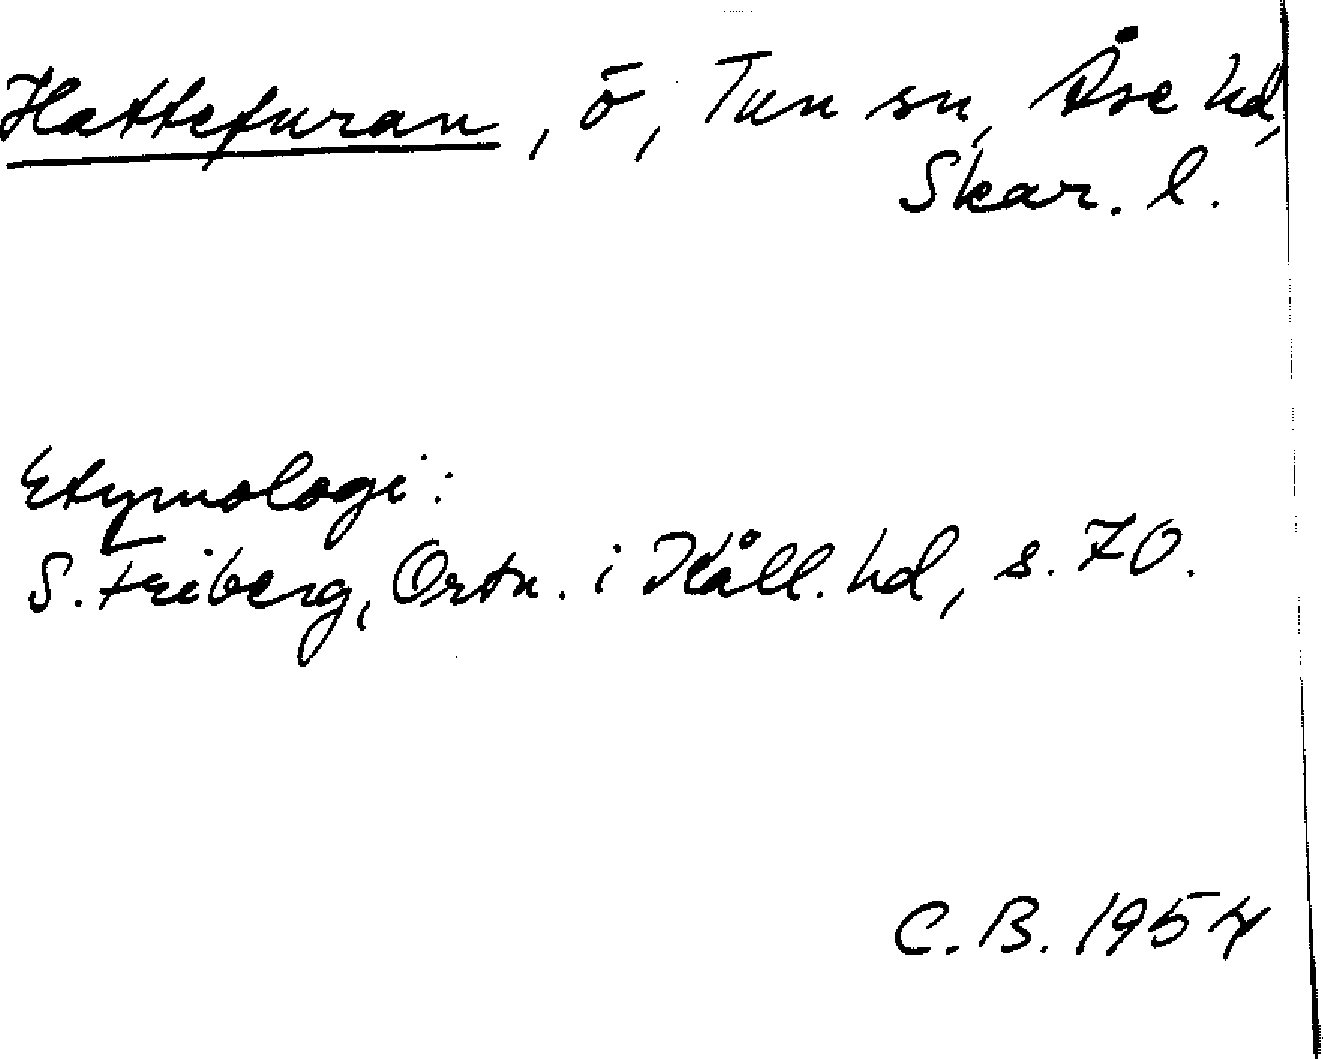 Hattefuran, ö, Tun sn, Åse hd,
Skar. l.
Etymologi:
S. Friberg, Ortn. i Kåll. hd, s. 70.
C. B. 1954